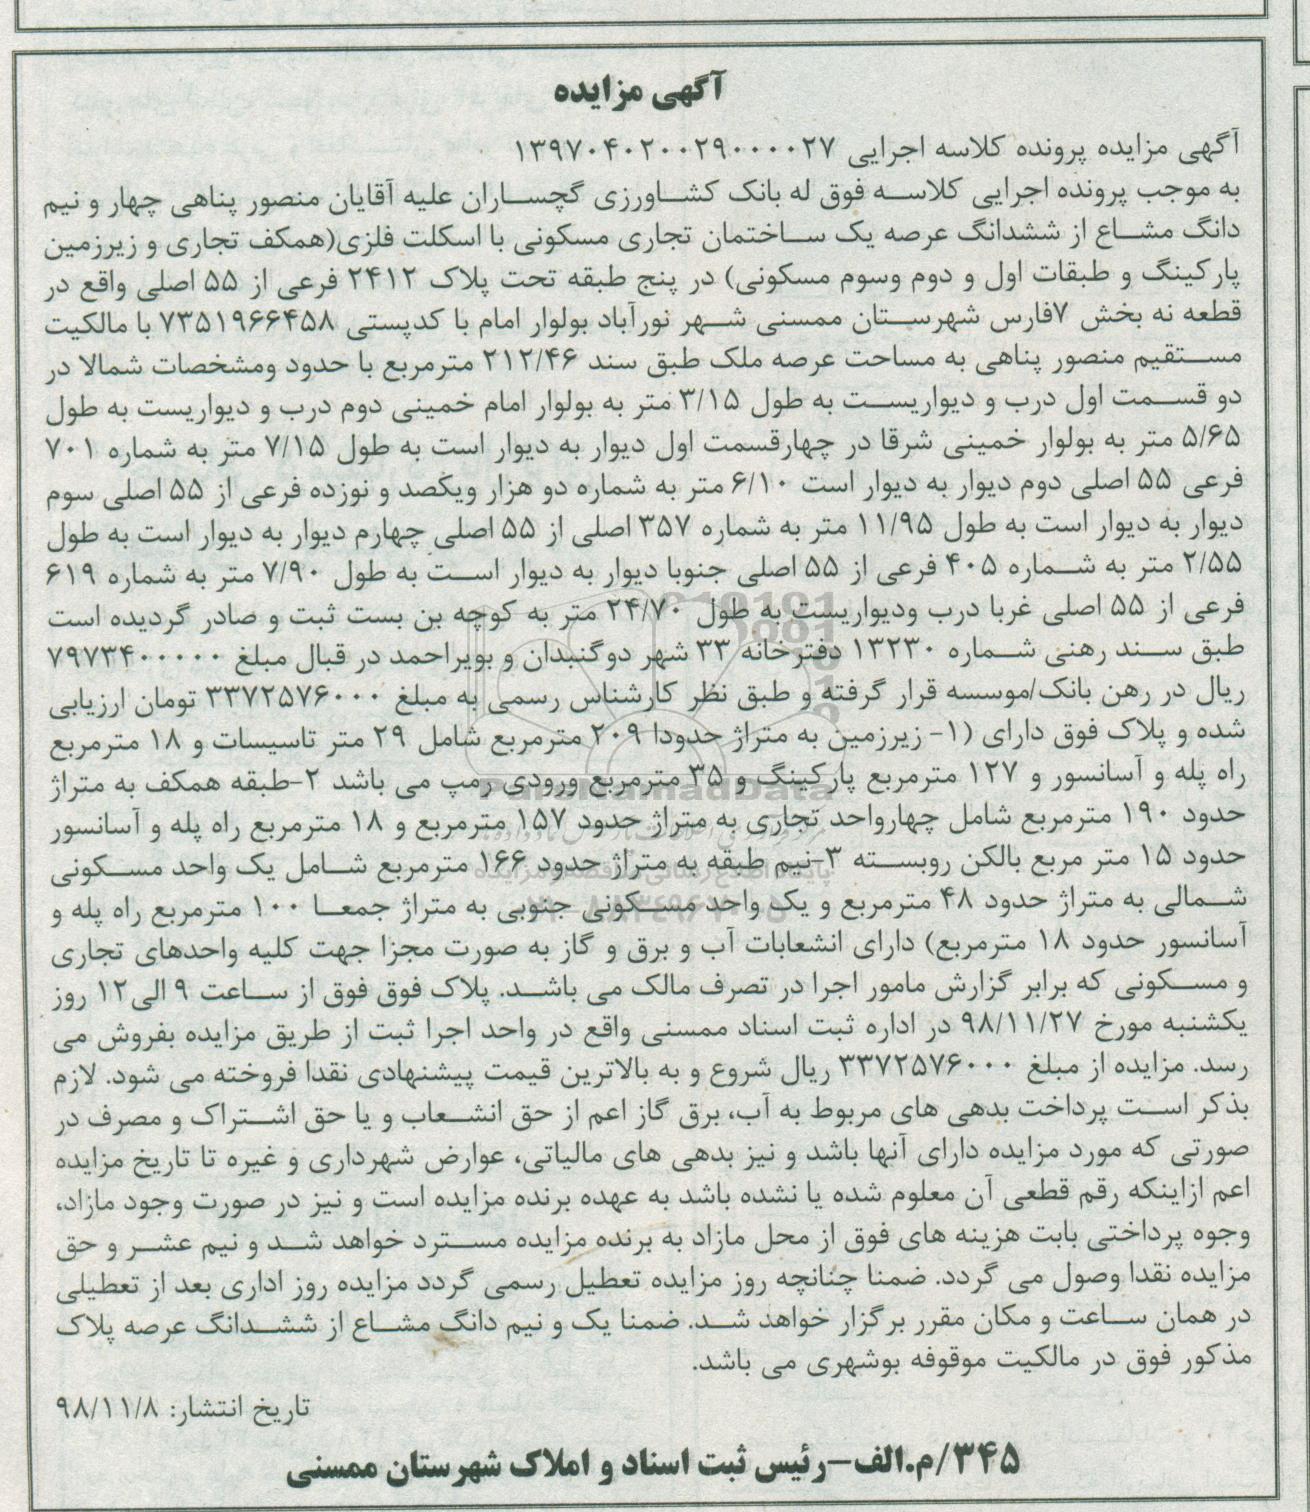 آگهی مزایده
آگهی مزایده پرونده کلاسه اجرایی ۱۳۹۷۰۴۰۲۰۰۲۹۰۰۰۰۲۷
به موجب پرونده اجرایی کلاسه فوق له بانک کشاورزی گچساران علیه آقایان منصور پناهی چهار و نیم
دانگ مشاع از ششدانگ عرصه یک ساختمان تجاری مسکونی با اسکلت فلزی(همکف تجاری و زیرزمین
پارکینگ و طبقات اول و دوم وسوم مسکونی) در پنج طبقه تحت پلاک ۲۴۱۲ فرعی از ۵۵ اصلی واقع در
قطعه نه بخش ۷فارس شهرستان ممسنی شهر نورآباد بولوار امام با کدپستی ۷۳۵۱۹۶۶۴۵۸ با مالکیت
مستقیم منصور پناهی به مساحت عرصه ملک طبق سند ۲۱۲/۴۶ مترمربع با حدود ومشخصات شمالا در
دو قسمت اول درب و دیواریست به طول ۳/۱۵ متر به بولوار امام خمینی دوم درب و دیواریست به طول
۵/۶۵ متر به بولوار خمینی شرقا در چهارقسمت اول دیوار به دیوار است به طول ۷/۱۵ متر به شماره ۷۰۱
فرعی ۵۵ اصلی دوم دیوار به دیوار است ۶/۱۰ متر به شماره دو هزار ویکصد و نوزده فرعی از ۵۵ اصلی سوم
دیوار به دیوار است به طول ۱۱/۹۵ متر به شماره ۳۵۷ اصلی از ۵۵ اصلی چهارم دیوار به دیوار است به طول
۲/۵۵ متر به شماره ۴۰۵ فرعی از ۵۵ اصلی جنوبا دیوار به دیوار است به طول ۷/۹۰ متر به شماره ۶۱۹
فرعی از ۵۵ اصلی غربا درب ودیواریست به طول ۲۴/۷۰ متر به کوچه بن بست ثبت و صادر گردیده است
طبق سند رهنی شماره ۱۳۲۳۰ دفترخانه ۳۳ شهر دوگنبدان و بویراحمد در قبال مبلغ ۷۹۷۳۴۰۰۰۰۰
ریال در رهن بانک/موسسه قرار گرفته و طبق نظر کارشناس رسمی به مبلغ ۳۳۷۲۵۷۶۰۰۰ تومان ارزیابی
شده و پلاک فوق دارای (۱- زیرزمین به متراژ حدودا ۲۰۹ مترمربع شامل ۲۹ متر تاسیسات و ۱۸ مترمربع
راه پله و آسانسور و ۱۲۷ مترمربع پارکینگ و ۳۵ مترمربع ورودی رمپ می باشد ۲-طبقه همکف به متراژ
حدود ۱۹۰ مترمربع شامل چهارواحد تجاری به متراژ حدود ۱۵۷ مترمربع و ۱۸ مترمربع راه پله و آسانسور
حدود ۱۵ متر مربع بالکن روبسته ۳-نیم طبقه به متراژ حدود ۱۶۶ مترمربع شامل یک واحد مسکونی
شمالی به متراژ حدود ۴۸ مترمربع و یک واحد مسکونی جنوبی به متراژ جمعا ۱۰۰ مترمربع راه پله و
آسانسور حدود ۱۸ مترمربع) دارای انشعابات آب و برق و گاز به صورت مجزا جهت کلیه واحدهای تجاری
و مسکونی که برابر گزارش مامور اجرا در تصرف مالک می باشد. پلاک فوق فوق از ساعت ۹ الی۱۲ روز
یکشنبه مورخ ۹۸/۱۱/۲۷ در اداره ثبت اسناد ممسنی واقع در واحد اجرا ثبت از طریق مزایده بفروش می
رسد. مزایده از مبلغ ۳۳۷۲۵۷۶۰۰۰ ریال شروع و به بالاترین قیمت پیشنهادی نقدا فروخته می شود. لازم
بذکر است پرداخت بدهی های مربوط به آب، برق گاز اعم از حق انشعاب و یا حق اشتراک و مصرف در
صورتی که مورد مزایده دارای آنها باشد و نیز بدهی های مالیاتی، عوارض شهرداری و غیره تا تاریخ مزایده
اعم ازاینکه رقم قطعی آن معلوم شده یا نشده باشد به عهده برنده مزایده است و نیز در صورت وجود مازاد،
وجوه پرداختی بابت هزینه های فوق از محل مازاد به برنده مزایده مسترد خواهد شد و نیم عشر و حق
مزایده نقدا وصول می گردد. ضمنا چنانچه روز مزایده تعطیل رسمی گردد مزایده روز اداری بعد از تعطیلی
در همان ساعت و مکان مقرر برگزار خواهد شد. ضمنا یک و نیم دانگ مشاع از ششدانگ عرصه پلاک
مذکور فوق در مالکیت موقوفه بوشهری می باشد.
تاریخ انتشار: ۹۸/۱۱/۸
۳۴۵/م.الف–رئیس ثبت اسناد و املاک شهرستان ممسنی